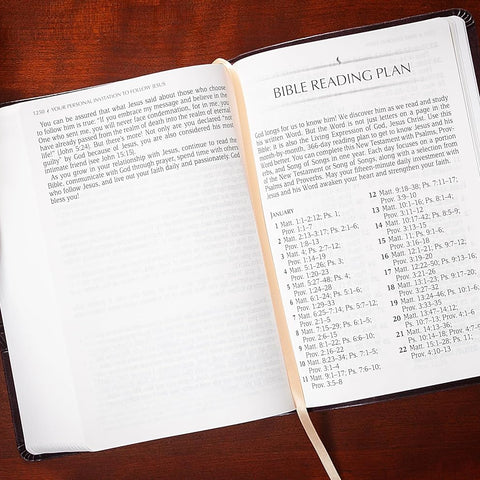 1250 | YOUR PERSONAL INVITATION TO FOLLOW JESUS
You can be assured that what Jesus said about those who choose
to follow him is true: "If you embrace my message and believe in the
One who sent me, you will never face condemnation, for in me, you
have already passed from the realm of death into the realm of eternal
life!" (John 5:24). But there's more! Not only are you declared "not
guilty" by God because of Jesus, you are also considered his most
intimate friend (see John 15:15).
As you grow in your relationship with Jesus, continue to read the
Bible, communicate with God through prayer, spend time with others
who follow Jesus, and live out your faith daily and passionately. God
bless you!
BIBLE READING PLAN
God longs for us to know him! We discover him as we read and study
his written Word. But the Word is not just letters on a page of the
Bible: it is also the Living Expression of God, Jesus Christ. Use this
month-by-month, 366-day reading plan to get to know Jesus and his
Word better. You can complete this New Testament with Psalms, Prov-
erbs, and Song of Songs in one year. Each day focuses on a portion
of the New Testament or Song of Songs, along with a selection from
Psalms and Proverbs. May your fifteen-minute daily investment with
Jesus and his Word awaken your heart and strengthen your faith.
JANUARY
1 Matt. 1:1–2:12; Ps. 1;
Prov. 1:1–7
2 Matt. 2:13–3:17; Ps. 2:1–6;
Prov. 1:8–13
3 Matt. 4; Ps. 2:7–12;
Prov. 1:14–19
4 Matt. 5:1–26; Ps. 3;
Prov. 1:20–23
5 Matt. 5:27–48; Ps. 4;
Prov. 1:24–28
6 Matt. 6:1–24; Ps. 5:1–6;
Prov. 1:29–33
7 Matt. 6:25–7:14; Ps. 5:7–12;
Prov. 2:1–5
8 Matt. 7:15–29; Ps. 6:1–5;
Prov. 2:6–15
9 Matt. 8:1–22; Ps. 6:6–10;
Prov. 2:16–22
10 Matt. 8:23–34; Ps. 7:1–5;
Prov. 3:1–4
11 Matt. 9:1–17; Ps. 7:6–10;
Prov. 3:5–8
12 Matt. 9:18–38; Ps. 7:11–17;
Prov. 3:9–10
13 Matt. 10:1–16; Ps. 8:1–4;
Prov. 3:11–12
14 Matt. 10:17–42; Ps. 8:5–9;
Prov. 3:13–15
15 Matt. 11; Ps. 9:1–6;
Prov. 3:16–18
16 Matt. 12:1–21; Ps. 9:7–12;
Prov. 3:19–20
17 Matt. 12:22–50; Ps. 9:13–16;
Prov. 3:21–26
18 Matt. 13:1–23; Ps. 9:17–20;
Prov. 3:27–32
19 Matt. 13:24–46; Ps. 10:1–6;
Prov. 3:33–35
20 Matt. 13:47–14:12;
Ps. 10:7–13; Prov. 4:1–6
21 Matt. 14:13–36;
Ps. 10:14–18; Prov. 4:7–9
22 Matt. 15:1–28; Ps. 11;
Prov. 4:10–13